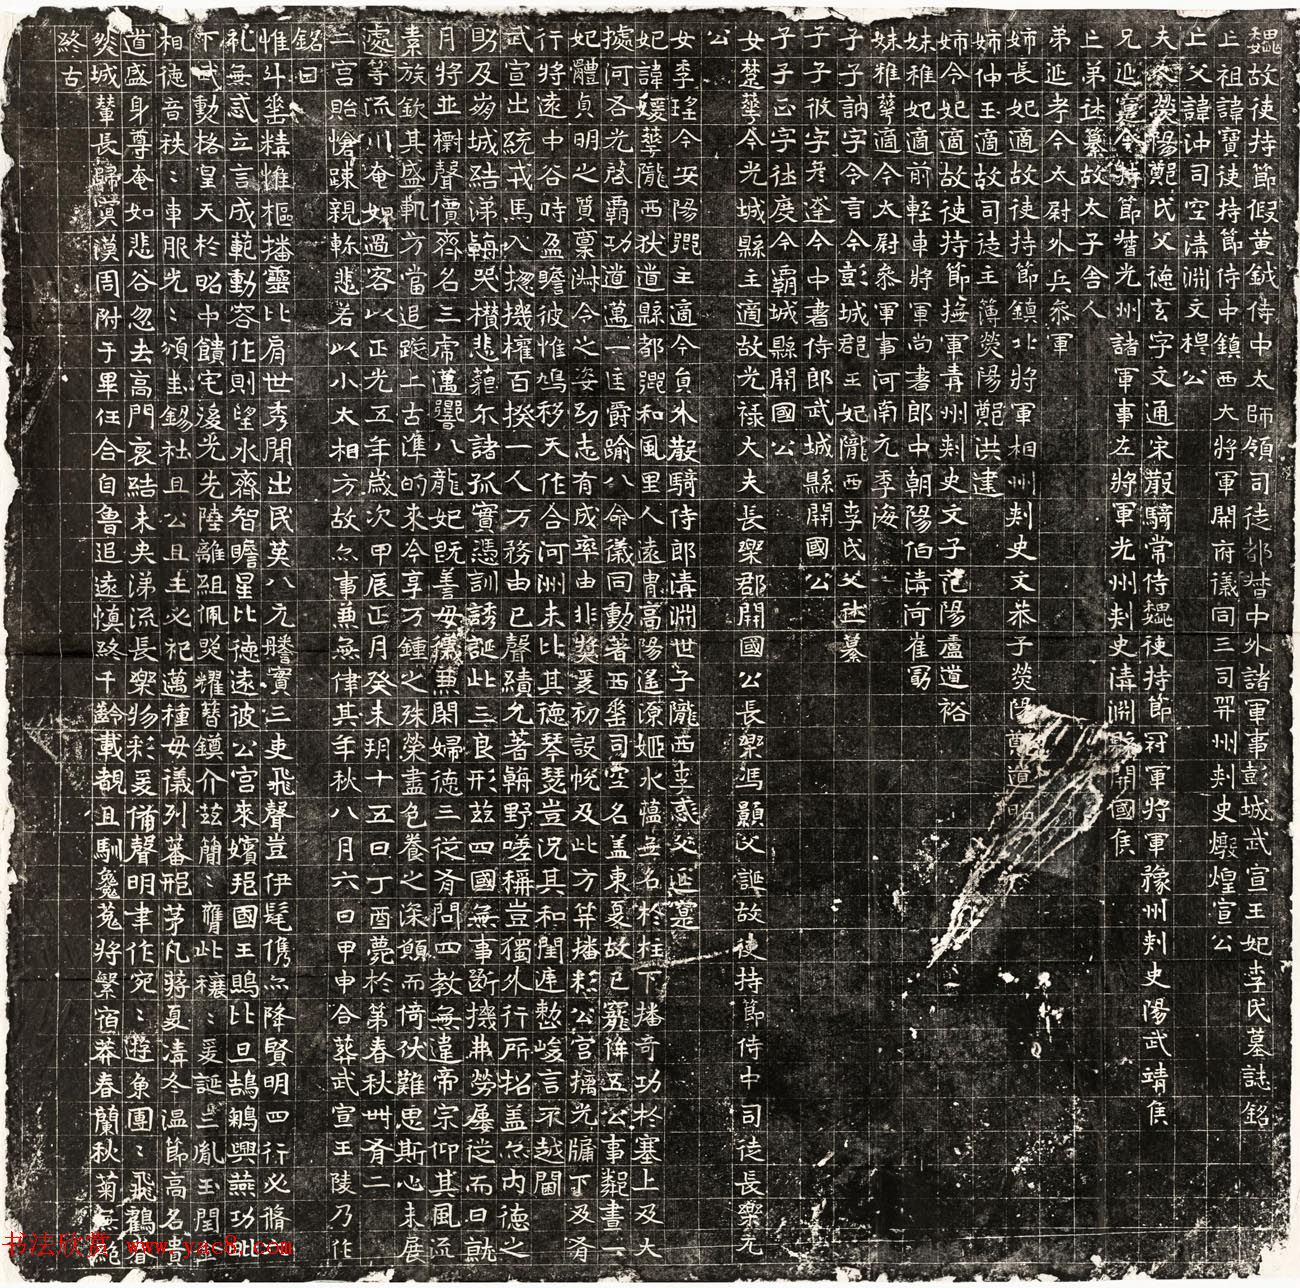 魏故使持節假黃鉞侍中太師領司徒都督中外諸軍事彭城武宣王妃李氏墓誌銘
亡祖諱寶使持節侍中鎮西大將軍開府儀同三司并州刺史燉煌宣公
亡父諱沖司空清淵文穆公
夫人滎陽鄭氏父德玄字文通宋散騎常侍魏使持節冠軍將軍豫州刺史陽武靖侯
兄延寔今持節督光州諸軍事左將軍光州刺史清淵縣開國侯
亡弟休纂故太子舍人
弟延孝今太尉外兵參軍
姊長妃適故使持節鎮北將軍相州刺史文恭子滎陽鄭道昭
姊仲玉適故司徒主簿滎陽鄭洪建
姊令妃適故使持節撫軍青州刺史文子范陽盧道裕
妹稚妃適前輕車將軍尚書郎中朝陽伯清河崔勗
妹稚華適今太尉參軍事河南元季海
子子訥字令言今彭城郡王妃隴西李氏父休纂
子子攸字彥達今中書侍郎武城縣開國公
子子正字休度今霸城縣開國公
女楚華今光城縣主適故光祿大夫長樂郡開國公長樂馮顥父誕故使持節侍中司徒長樂元
公
女季瑤今安陽鄉主適今員外散騎侍郎清淵世子隴西李彧父延寔
妃諱媛華隴西狄道縣都鄉和風里人遠胄高陽遙源姬水蘊無名於柱下播奇功於塞上及大
據河右光啓霸功道邁一匡爵踰八命儀同勳著西垂司空名蓋東夏故已寵侔五公事麗晝一
妃體貞明之質稟淋令之姿幼志有成率由非獎爰初設帨及此方笄播彩公宮摛光牖下及肴
行將遠中谷時盈瞻彼惟鳩移天作合河洲未比其德琴瑟豈況其和閨連懃峻言不越閫
武宣出統戎馬入揔機權百揆一人万務由己聲績允著朝野嗟稱豈獨外行所招蓋亦內德之
助及崩城結涕朝哭欑悲藐尒諸孤寔憑訓誘誕此三良形茲四國無事斷機弗勞屢徙而日就
月將並櫛聲價齊名三虎邁譽八龍妃旣善母儀兼閑婦德三從肴問四教無違帝宗仰其風流
素族欽其盛軌方當追蹤上古準的來今享万鍾之殊榮盡色養之深願而倚伏難思斯心未展
處等流川奄如過客以正光五年歲次甲辰正月癸未玥十五日丁酉薨於第春秋卌有二
二宮貽愴踈親軫悲若以小大相方故亦事兼無律其年秋八月六日甲申合葬武宣王陵乃作
銘曰
惟斗垂精惟樞播靈比肩世秀聞出民英八元謄實三吏飛聲豈伊髦儁亦降賢明四行必脩
礼無忒立言成範動容作則望水齊智瞻星比德遠彼公宮來嬪邦國王鴡比旦鵠鵴興燕功此
下武動格皇天於昭中饋宅後光先陸離組佩照耀簪鎮介茲簡〻膺此穰〻爰誕三胤玉閏
相德音秩〻車服光〻頒圭錫社且公且王必祀萬種母儀列蕃邢茅凡蔣夏清冬溫節高名貴
道盛身尊奄如悲谷忽去高門哀結未央涕流長樂物彩爰備聲明聿作宛〻遊魚團〻飛鶴眷
然城輦長歸冥漠周附于畢任合自魯追遠慎終千齡載覩且馴麁菟將縈宿莽春蘭秋菊無絕
終古
书法欣赏 www.yac8.com